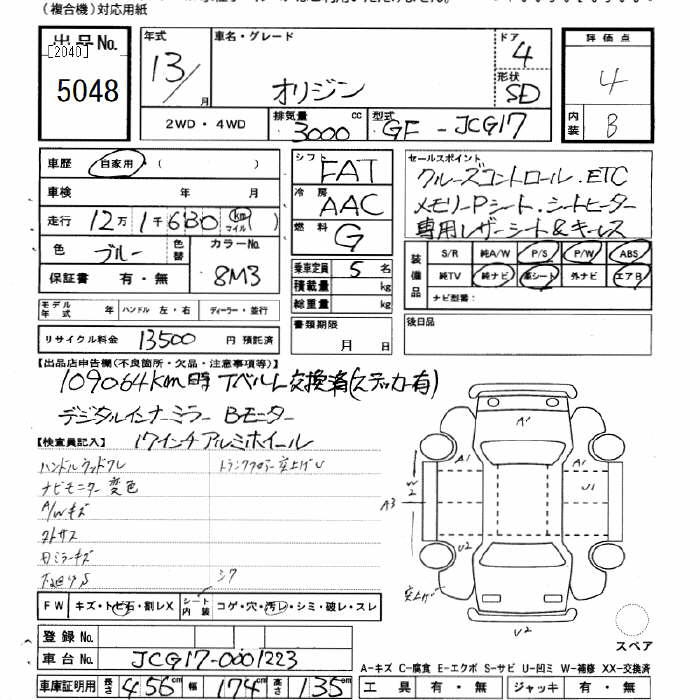 (複合機)対応用紙
出品No.
[2040]
5048
年式
13/
月
車名・グレード
オリジン
ドア
4
形状
SD
評価点
4
内装
B
2WD・4WD
排気量
3000
cc
型式
GF-JCG17
車歴
自家用
(
車検
年
月
走行
12万1千680
km
マイル
色
ブルー
色替
カラーNo.
8M3
保証書
有・無
シフト
FAT
冷房
AAC
燃料
G
乗車定員
5
名
積載量
kg
総重量
kg
セールスポイント
クルーズコントロール.ETC
メモリーPシート.シートヒーター
専用レザーシート&キーレス
装備品
S/R
純A/W
P/S
P/W
ABS
純TV
純ナビ
革シート
外ナビ
エアB
ナビ型番:
モデル年式
年
ハンドル
左・右
ディーラー・並行
書類期限
月
日
後日品
リサイクル料金
13500
円
預託済
【出品店申告欄(不良箇所・欠品・注意事項等)】
109064km時 Tベルト交換済(ステッカー有)
デジタルインナーミラー Bモニター
【検査員記入】
17インチアルミホイール
トランクフロアー 突上げU
ナビモニター変色
A/Wキズ
シワ
A1
A1
U1
W2
A3
U2
突上げ
U2
FW
キズ・トビ石・割レX
シート内装
コゲ・穴・汚レ・シミ・破レ・スレ
スペア
登録No.
車台No.
JCG17-0001223
A-キズ C-腐食 E-エクボ S-サビ U-凹ミ W-補修 XX-交換済
車庫証明用
長さ
456
cm
幅
174
cm
高さ
135
cm
工具
有・無
ジャッキ
有・無